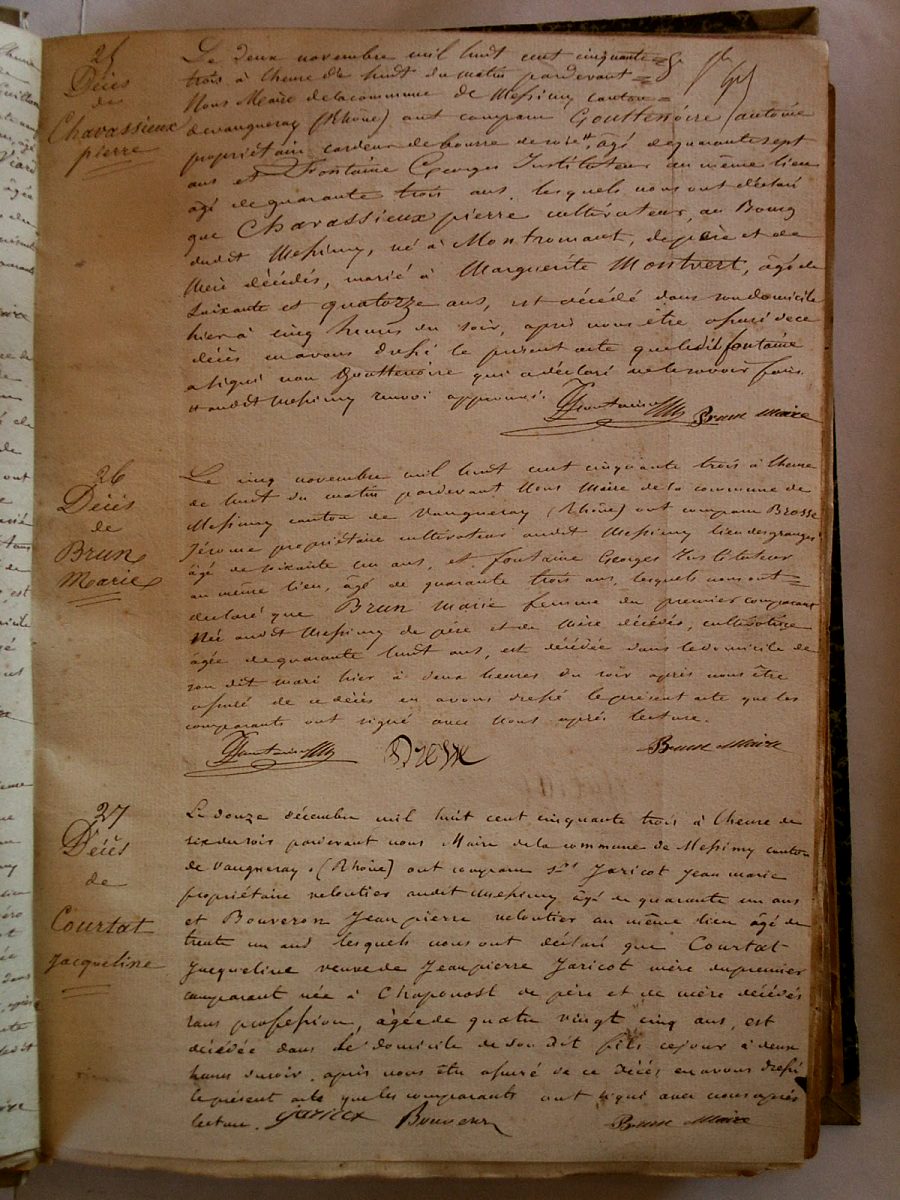 25
Décès
de
Chavassieux
pierre
Le deux novembre mil huit cent cinquante =
trois à l'heure de huit du matin pardevant =
Nous Maire de la commune de Messimy canton =
de vaugneray (Rhône) ont comparu Gouttenoire antoine
propriétaire cardeur de bourre de soie #, âgé de quarante sept
ans et Fontaine Georges Instituteur au même lieu
âgé de quarante trois ans, lesquels nous ont déclaré
que Chavassieux pierre cultivateur, au Bourg
dudit Messimy, né à Montromant, de père et de
mère décédés, marié à Marguerite Montvert, âgé de
soixante et quatorze ans, est décédé dans son domicile
hier à cinq heures du soir, après nous être assuré de ce
décès en avons dressé le présent acte que ledit fontaine
a signé non Gouttenoire qui a déclaré ne le savoir faire
# audit Messimy renvoi approuvé.
Fontaine
maire
26
Décès
de
Brun
Marie
Le cinq novembre mil huit cent cinquante trois à l'heure
de huit du matin pardevant Nous Maire de la commune de
Messimy canton de Vaugneray (Rhône) ont comparu Brosse
Jérome propriétaire cultivateur audit Messimy lieu des granges
âgé de soixante un ans, et fontaine Georges Instituteur
au même lieu, âgé de quarante trois ans, lesquels nous ont =
déclaré que Brun Marie femme du premier comparant
Née audit Messimy de père et de mère décédés, cultivatrice
âgée de quarante huit ans, est décédée dans le domicile de
son dit mari hier à deux heures du soir après nous être
assuré de ce décès en avons dressé le présent acte que les
comparants ont signé avec Nous après lecture.
Fontaine
Maire
27
Décès
de
Courtat
Jacqueline
Le douze décembre mil huit cent cinquante trois à l'heure de
six du soir pardevant nous Maire de la commune de Messimy canton
de Vaugneray (Rhône) ont comparu Jaricot Jean marie
propriétaire veloutier audit Messimy âgé de quarante un ans
et Bouveron Jean pierre veloutier au même lieu âgé de
trente un ans lesquels nous ont déclaré que Courtat
Jacqueline veuve de Jean pierre Jaricot mère du premier
comparant née à Chaponost de père et de mère décédés
sans profession, âgée de quatre vingt cinq ans, est
décédée dans le domicile de son dit fils ce jour à deux
heures du soir. après nous être assuré de ce décès en avons dressé
le présent acte que les comparants ont signé avec nous après
lecture.
Maire